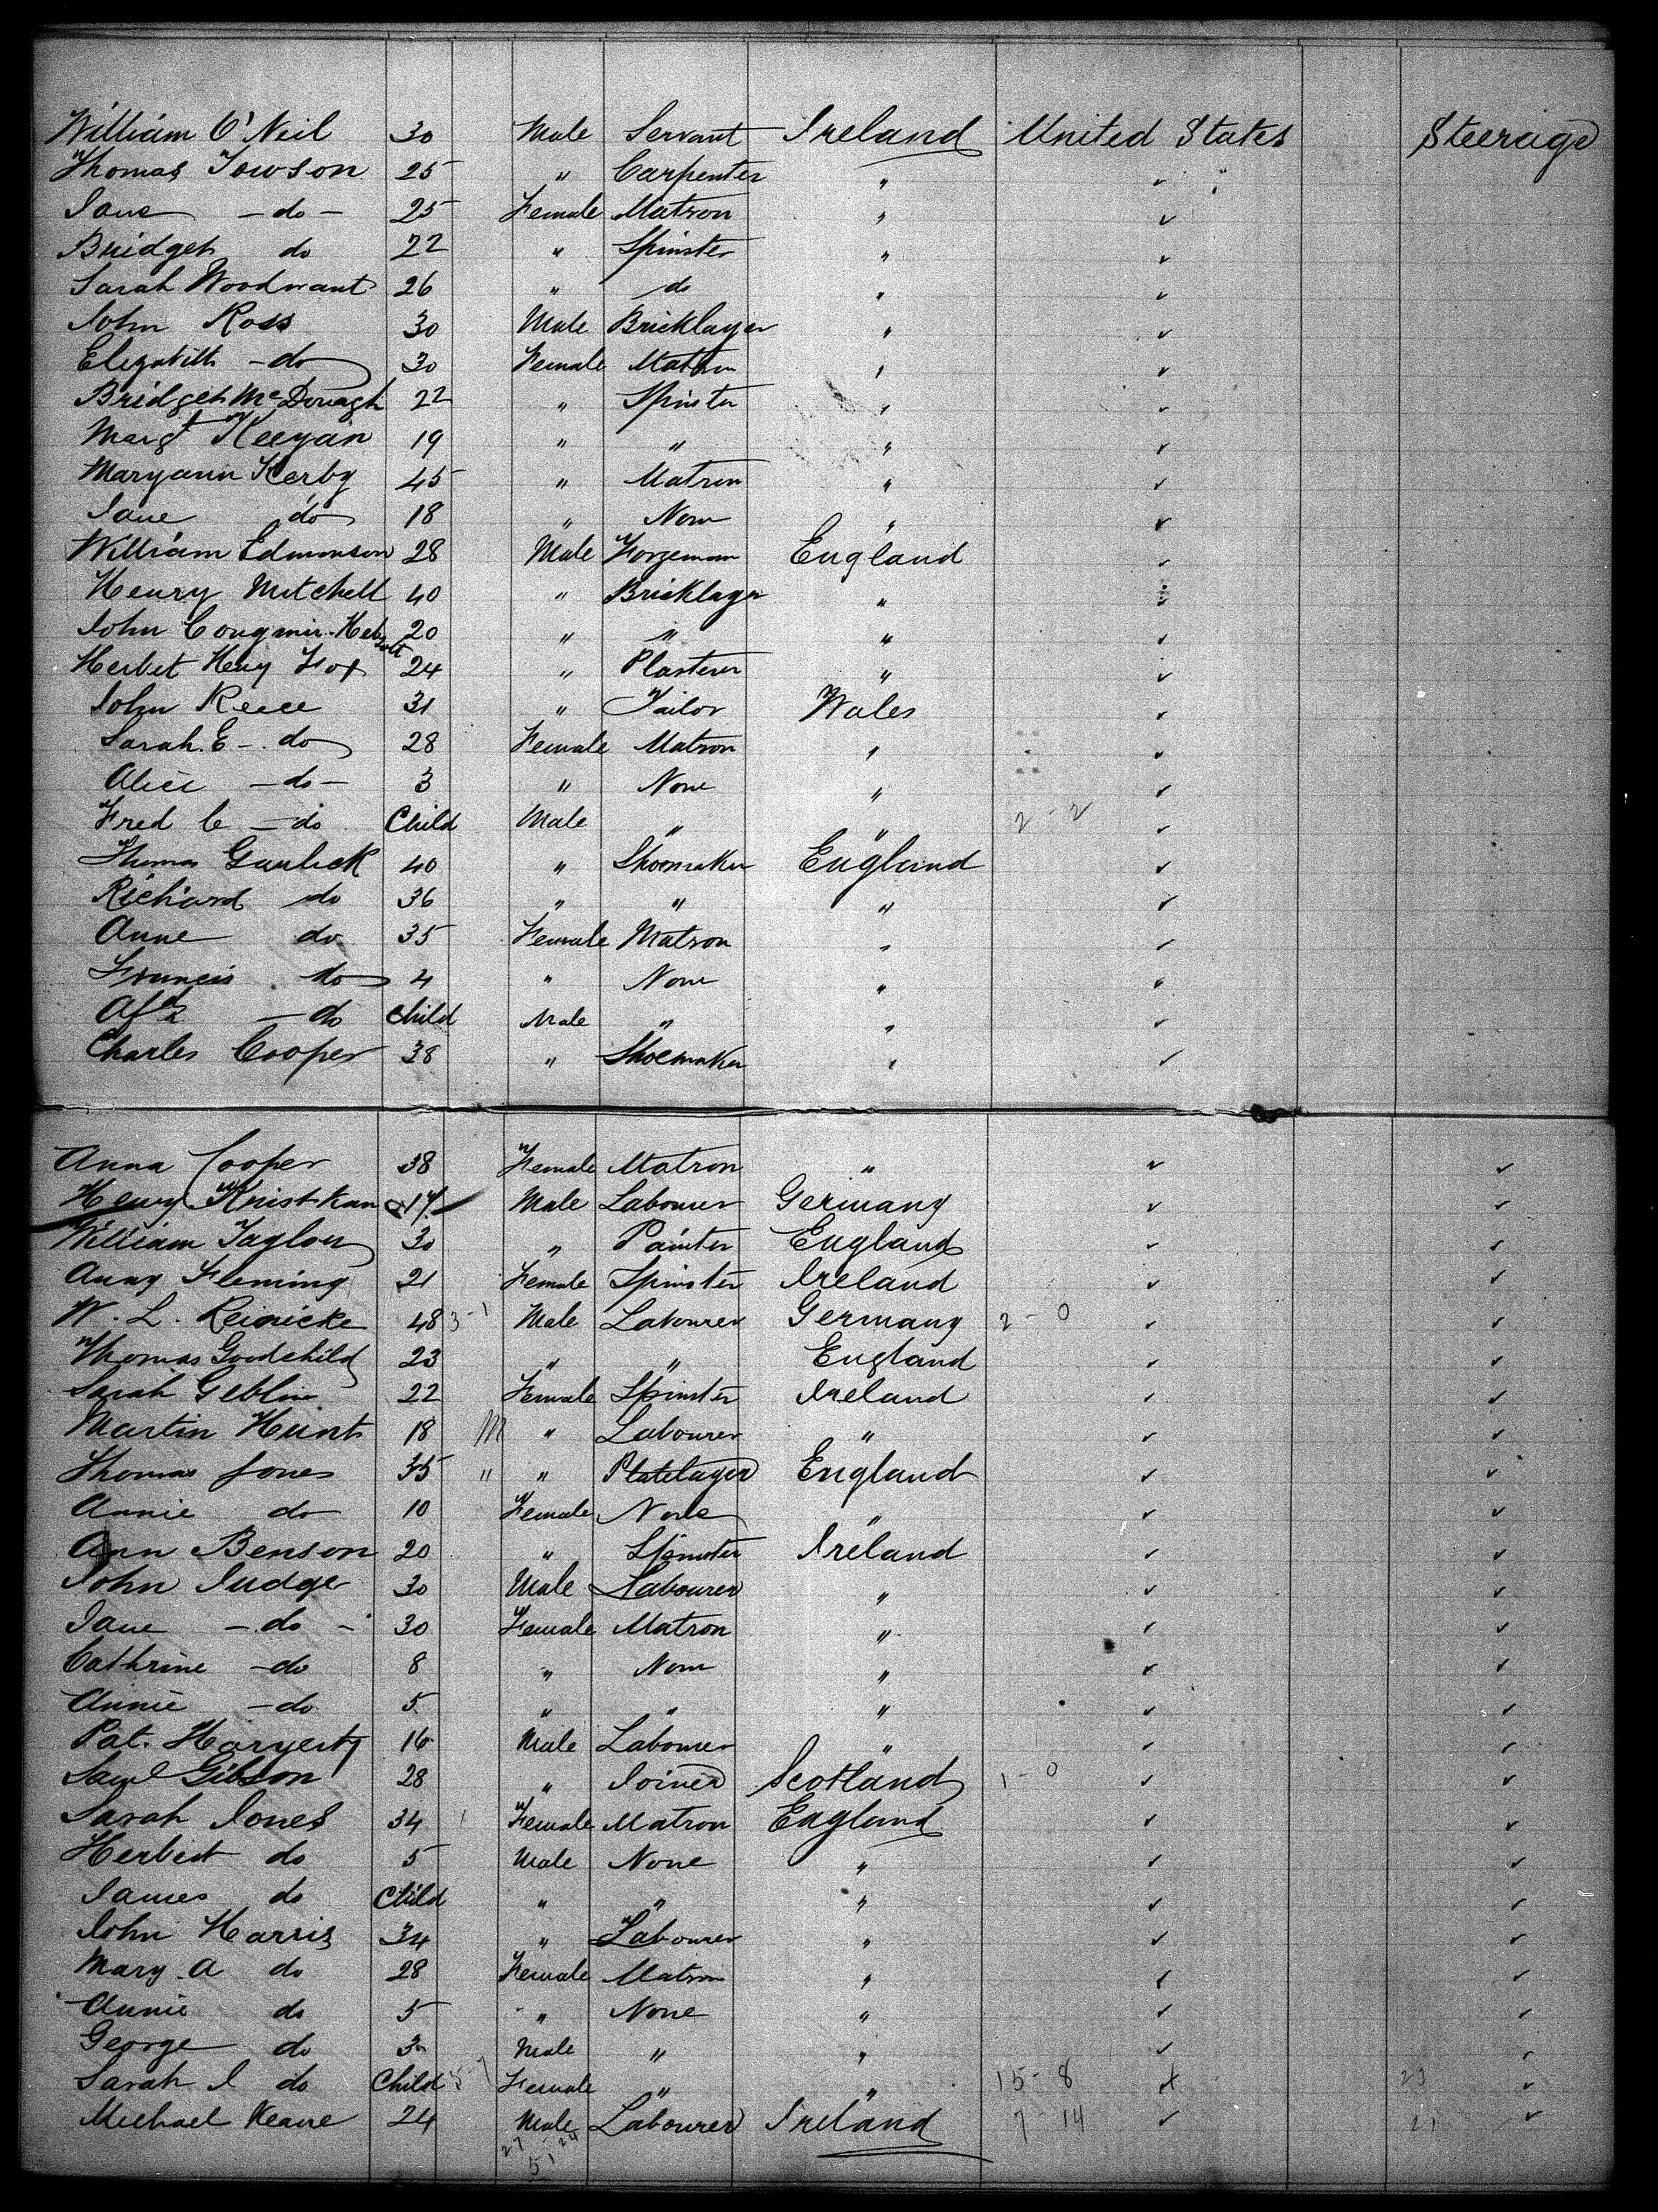 William O'Neil 30 Male Servant Ireland United States Steerage
Thomas Towson 25 " Carpenter " "
Jane - do - 25 Female Matron " "
Bridget do 22 " Spinster " "
Sarah 26 " do " "
John Ross 30 Male Bricklayer " "
Elizabeth - do 30 Female Matron " "
Bridget McDonagh 22 " Spinster " "
Margt Keegan 19 " " " "
Maryann Kerby 45 " Matron " "
Jane do 18 " None " "
William Edmonson 28 Male Forgeman England "
Henry Mitchell 40 " Bricklayer " "
John 20 " " " "
Herbet Henry Fox 24 " Plasterer " "
John Reece 31 " Tailor Wales "
Sarah. E - do 28 Female Matron " "
Alice - do - 3 " None " "
Fred C - do Child Male " " 2 - 2 "
Thomas Garlick 40 " Shoemaker England "
Richard do 36 " " " "
Anne do 35 Female Matron " "
Francis do 4 " None " "
- do Child Male " " "
Charles Cooper 38 " Shoemaker " "
Anna Cooper 38 Female Matron " " "
Henry 17 Male Labourer Germany " "
William Taylor 30 " Painter England " "
Anny Fleming 21 Female Spinster Ireland " "
W. L. Reinicke 48 3-1 Male Labourer Germany 2 - 0 " "
Thomas Goodchild 23 " " England " "
Sarah 22 Female Spinster Ireland " "
Martin Hunt 18 M " Labourer " " "
Thomas Jones 35 " " Platelayer England " "
Annie do 10 Female None " " "
Ann Benson 20 " Spinster Ireland " "
John Judge 30 Male Labourer " " "
Jane - do - 30 Female Matron " " "
Cathrine - do 8 " None " " "
Annie - do 5 " " " " "
Pat. 16 Male Labourer " " "
Saml Gibson 28 " Joiner Scotland 1 - 0 " "
Sarah Jones 34 1 Female Matron England " "
Herbert do 5 Male None " " "
James do Child " " " " "
John Harris 34 " Labourer " " "
Mary. A do 28 Female Matron " " "
Annie do 5 " None " " "
George do 3 Male " " " "
Sarah J do Child 5-7 Female " " 15 - 8 " 23 "
Michael Keane 24 Male Labourer Ireland 7 14 " 21 "
27 24
51